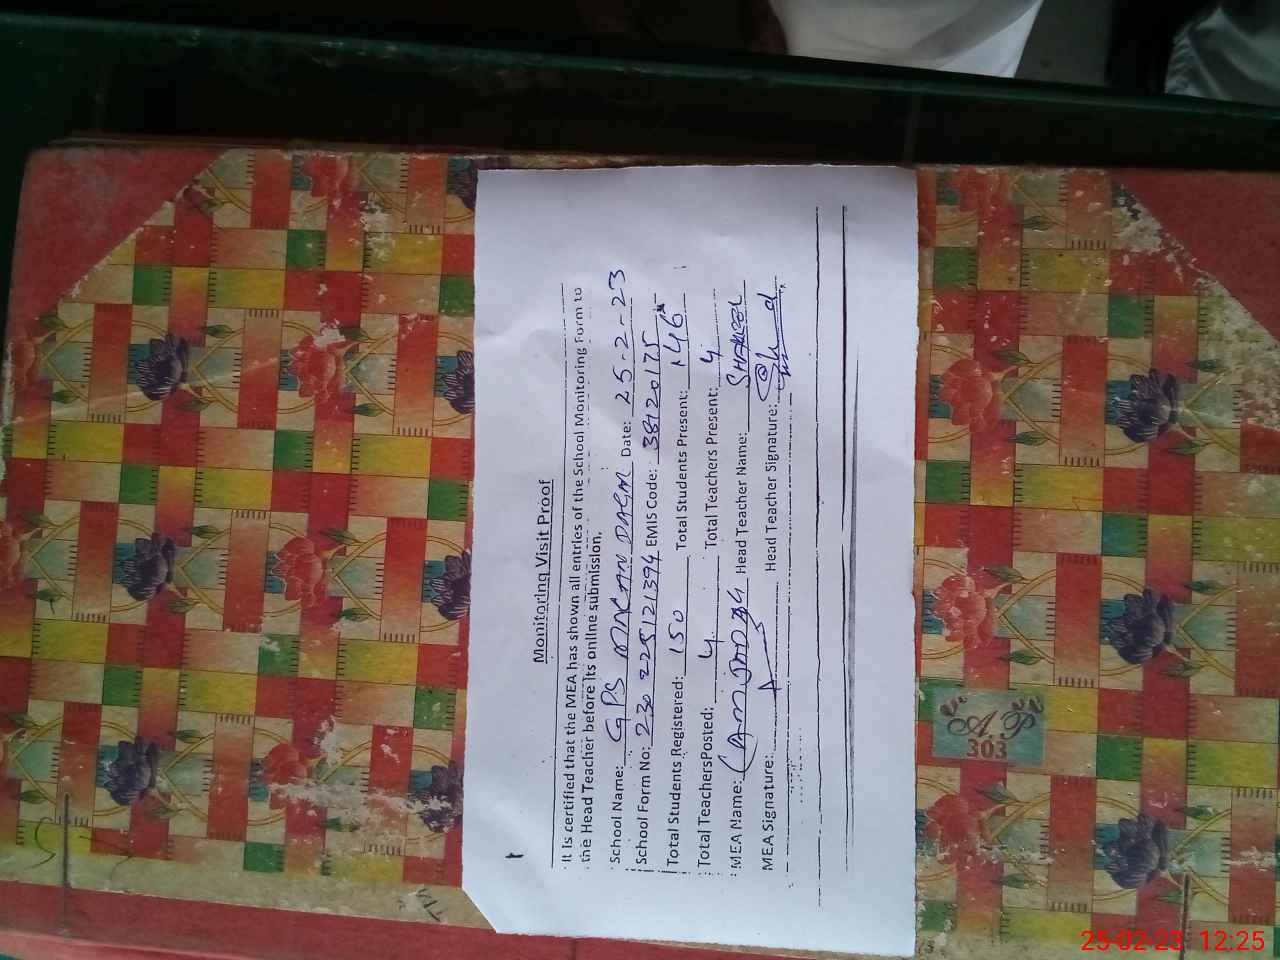 Monitoring Visit Proof
It is certified that the MEA has shown all entries of the School Monitoring Form to
the Head Teacher before its online submission.
School Name: GPS DAGAI Date: 25-2-23
School Form No: 230 225121394 EMIS Code: 38120175
Total Students Registered: 150 Total Students Present: 146
Total TeachersPosted: 4 Total Teachers Present: 4
MEA Name: Head Teacher Name: SHAKEEL
MEA Signature: Head Teacher Signature:
A.P
303
25-02-23 12:25